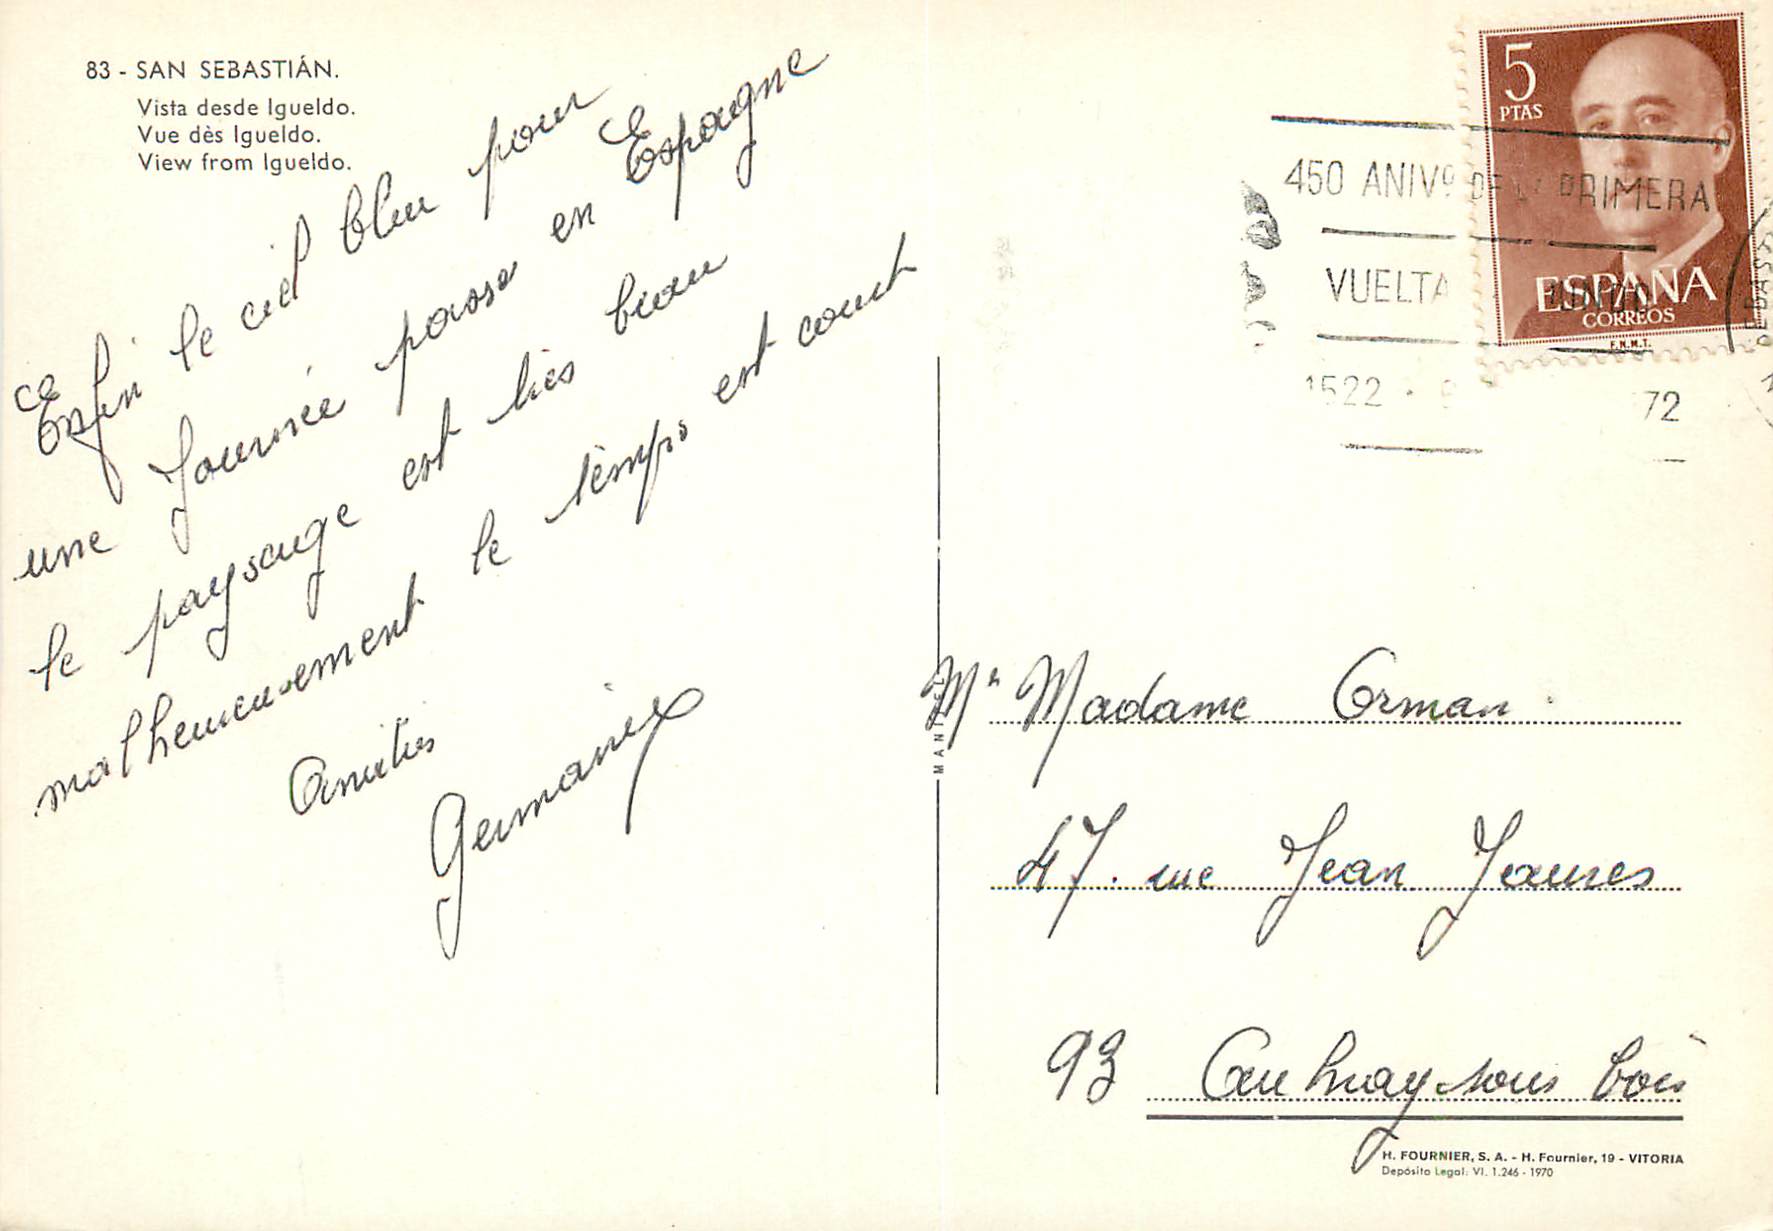 83 - SAN SEBASTIÁN.
Vista desde Igueldo.
Vue dès Igueldo.
View from Igueldo.
Enfin le ciel bleu pour
une journée passer en Espagne
le paysage est très beau
malheureusement le temps est court
Amitiés
Germaine
5
PTAS
ESPAÑA
CORREOS
F.N.M.T.
450 ANIVº DE LA PRIMERA
VUELTA
1522
72
Mr Madame Orman
47. rue Jean Jaures
93 Aulnay sous bois
H. FOURNIER, S. A. - H. Fournier, 19 - VITORIA
Depósito Legal: VI. 1.246 - 1970